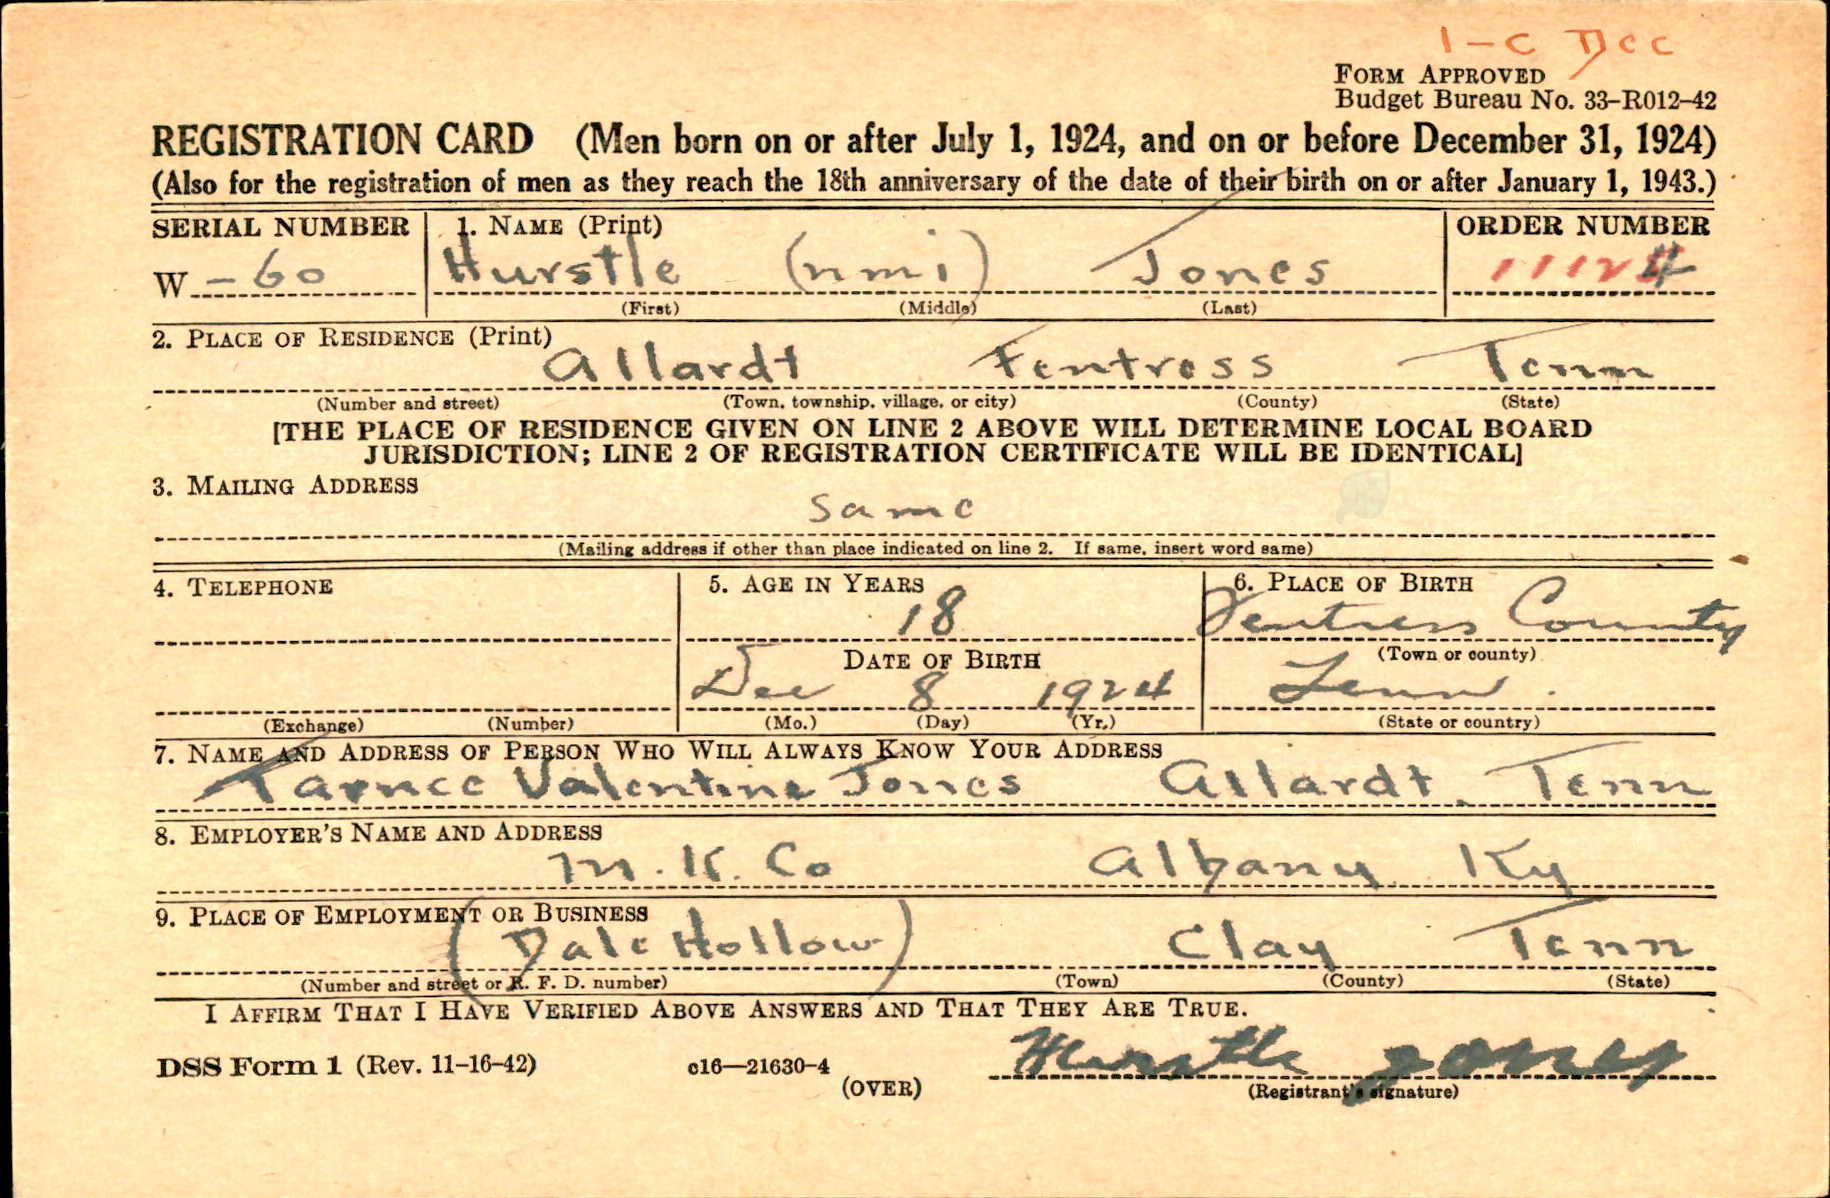 1-C Dcc
FORM APPROVED
Budget Bureau No. 33-R012-42
REGISTRATION CARD (Men born on or after July 1, 1924, and on or before December 31, 1924)
(Also for the registration of men as they reach the 18th anniversary of the date of their birth on or after January 1, 1943.)
SERIAL NUMBER 1. NAME (Print) ORDER NUMBER
W -60 Hurstle (nmi) Jones 11124
(First) (Middle) (Last)
2. PLACE OF RESIDENCE (Print)
Allardt Fentress Tenn
(Number and street) (Town, township, village, or city) (County) (State)
[THE PLACE OF RESIDENCE GIVEN ON LINE 2 ABOVE WILL DETERMINE LOCAL BOARD
JURISDICTION; LINE 2 OF REGISTRATION CERTIFICATE WILL BE IDENTICAL]
3. MAILING ADDRESS
Same
(Mailing address if other than place indicated on line 2. If same, insert word same)
4. TELEPHONE 5. AGE IN YEARS 6. PLACE OF BIRTH
18 Fentress County
DATE OF BIRTH (Town or county)
Dec 8 1924 Tenn.
(Exchange) (Number) (Mo.) (Day) (Yr.) (State or country)
7. NAME AND ADDRESS OF PERSON WHO WILL ALWAYS KNOW YOUR ADDRESS
Valentine Jones Allardt, Tenn
8. EMPLOYER'S NAME AND ADDRESS
M. K. Co Albany Ky
9. PLACE OF EMPLOYMENT OR BUSINESS
(Dale Hollow) Clay Tenn
(Number and street or R. F. D. number) (Town) (County) (State)
I AFFIRM THAT I HAVE VERIFIED ABOVE ANSWERS AND THAT THEY ARE TRUE.
DSS Form 1 (Rev. 11-16-42) c16—21630-4 Hurstle Jones
(OVER) (Registrant's signature)